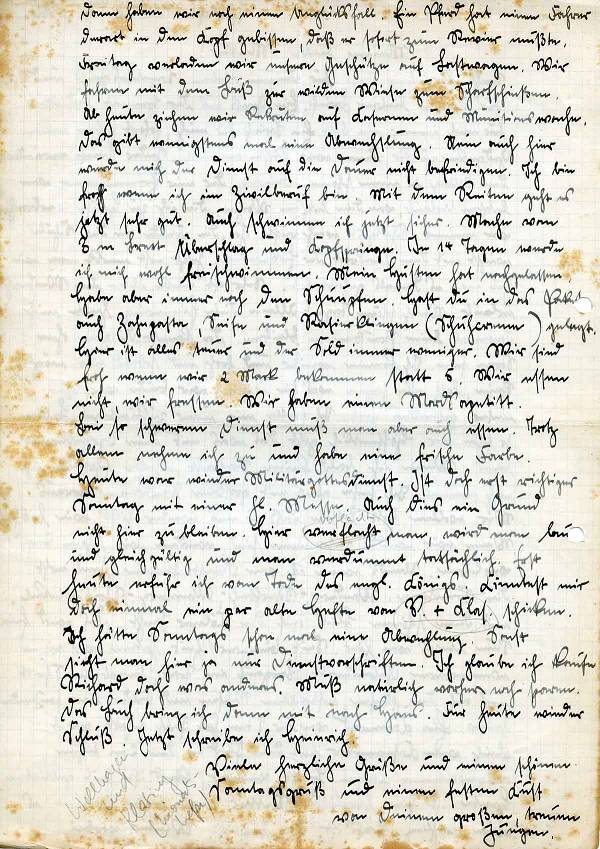 Dann haben wir noch einen Unglücksfall. Ein Pferd hat einen Fahrer
derart in den Kopf gebissen, daß er sofort zum Revier mußte.
Freitag verladen wir unsere Geschütze auf Lastwagen. Wir
fahren mit dem zur wilden Wiese zum Scharfschießen.
Ab heute ziehen wir Rekruten auf Kasernen und Munitionswache.
Das gibt wenigstens mal eine Abwechslung. Nein auch hier
würde mich der Dienst auf die Dauer nicht befriedigen. Ich bin
froh wenn ich im Zivilberuf bin. Mit dem Reiten geht es
jetzt sehr gut. Auch schwimmen ich jetzt sicher. Mache vom
3 m Brett Überschlag und Kopfsprünge. In 14 Tagen werde
ich mich wohl freischwimmen. Mein Husten hat nachgelassen
Habe aber immer noch den Schnupfen. Hast du in das Paket
auch Zahnpasta, Seife und Rasierklingen (Schuhcreme) gelegt.
Hier ist alles teuer und der Sold immer weniger. Wir sind
froh wenn wir 2 Mark bekommen statt 5. Wir essen
nicht, wir fressen. Wir haben einen Mordsapetitt.
Bei so schweren Dienst muß man aber auch essen. Trotz
allem nehme ich zu und habe eine frische Farbe.
Heute war wieder Militärgottesdienst. Ist doch erst richtiges
Sonntag mit einer hl. Messe. Auch dies ein Grund
nicht hier zu bleiben. Hier verflacht man, wird man lau
und gleichgültig und man verdummt tatsächlich. Erst
heute erfuhr ich vom Tode des engl. Königs. Könntest mir
doch einmal ein par alte Hefte von V. + Klas. schicken.
Ich hätte Sonntags schon mal eine Abwechlung. Sonst
sieht man hier ja nur Dienstvorschriften. Ich glaube ich kaufe
Richard doch was anderes. Muß natürlich vorher noch sparen.
Das Buch bring ich dann mit nach Haus. Für heute wieder
Schluß. Jetzt schreibe ich Heinrich.
Viele herzliche Grüße und einen schönen
Sonntagsgruß und einen festen Kuß
von Deinem großen, treuen
Jungen.
Velhagen
und
Klasing